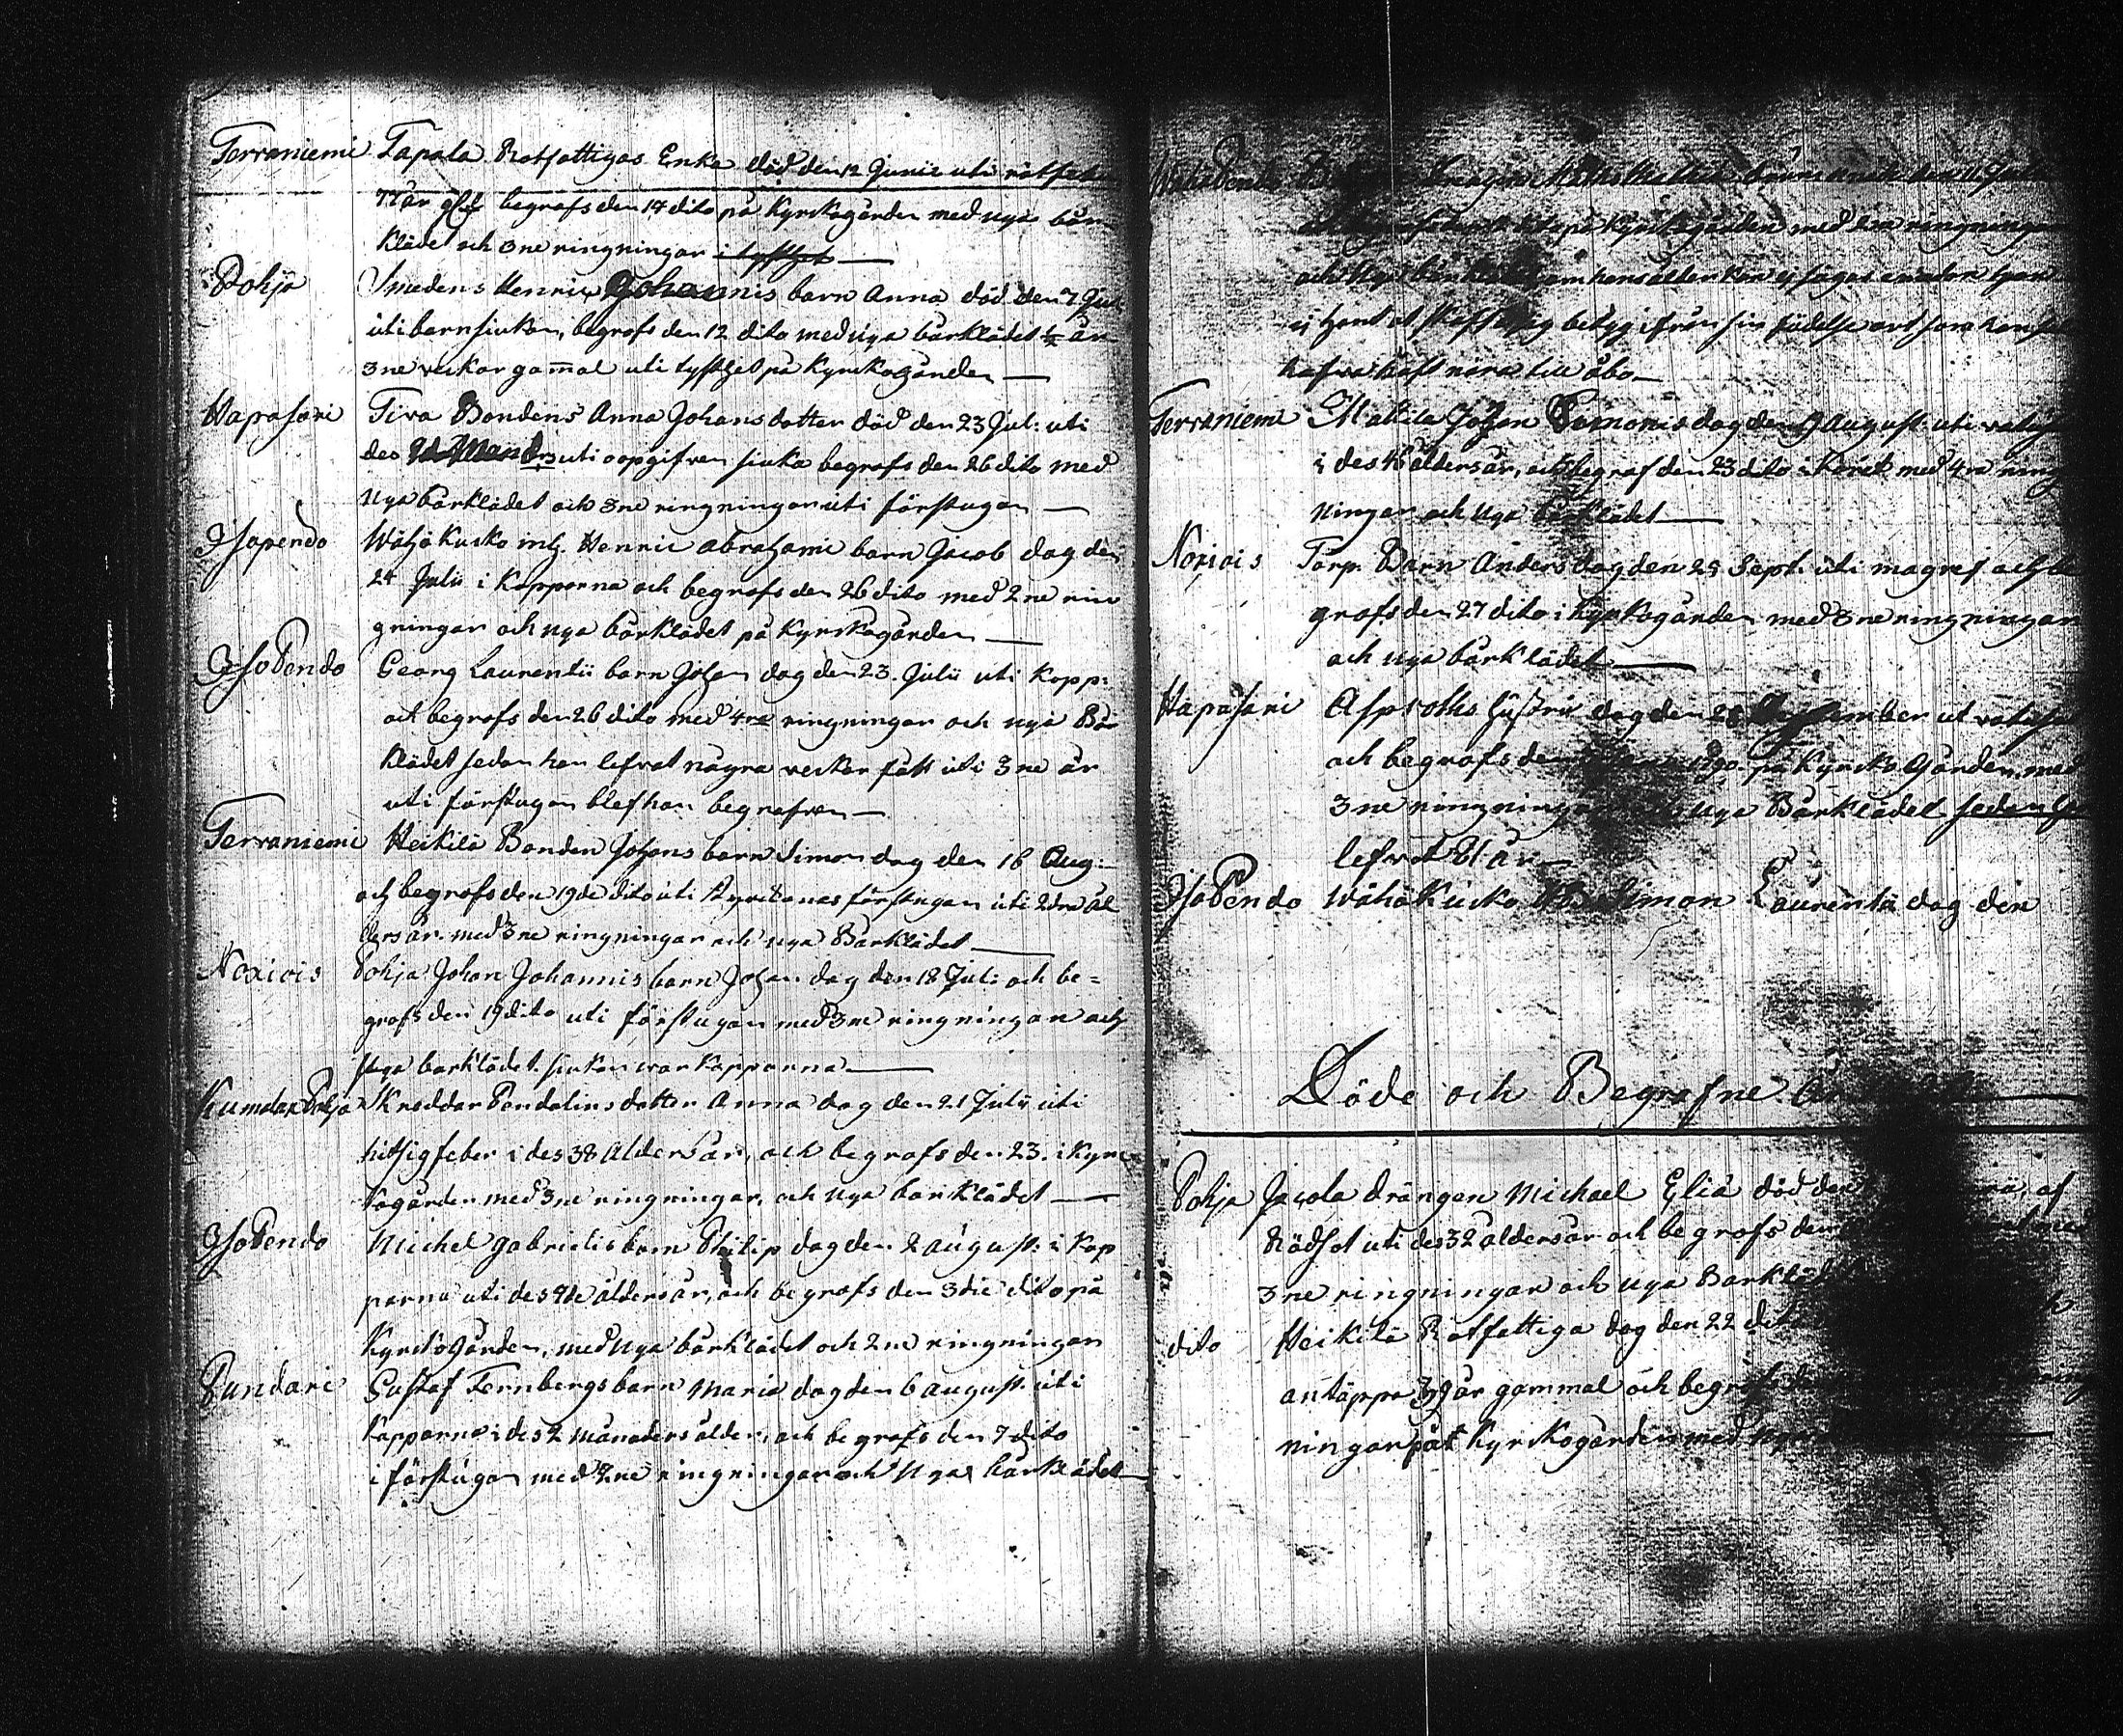 Terraniemi Tapala Rotfattigas Enka död den 12 Junii uti rötfeb
77 år gl begrafs den 14 dito på Kyrkogården med nya bår
Klädet och 3ne ringningar i tysthet
Pohja Smedens Henric Johannis barn Anna död den 7 Jul
uti barnsiukan, begrofs den 12 dito med nya bårklädet ½ år
3ne veckor gamal uti tysthet på Kyrkogården
Hapasari Tiva Bondens Anna Johansdotter död den 23 Jul: uti
des uti oopgifven siuka begrafs den 26 dito med
Nya bårklädet och 3ne ringningar uti förstugan
Isopendo Wähäkusko inh. Henric Abrahami barn Jacob dog den
24 Julii i Kopporna och begrofs den 26 dito med 2ne rin
gningar och nya bårklädet på Kyrkogården
Iso Pendo Georg Laurentii barn Johan dog den 23. Julii uti Kopp:
och begrofs den 26 dito med 4ra ringningar och nya Bår
klädet sedan han lefvat några veckor fått uti 3ne år
uti förstugan blef han begrafven
Terraniemi Heikilä Bonden Johans barn Simon dog den 16 Aug:
och begrofs den 19de dito uti Kyrckones förstugan uti 2dra ål
ders år. med 3ne ringningar och nya Barklädet
Noxiois Pohja Johan Johannis barn Johan dog den 18 Jul: och be=
grofs den 19 dito uti förstugan med 3ne ringningar och
nya barklädet. siukan war Kopporna
Kumolax Pohja Skreddar Pendalins dotter Anna dog den 21 Julii uti
hitsigfeber i des 38 Alders år, och begrafs den 23. i Kyrc
kogården med 3ne ringningar, och nya barklädet
Iso Pendo Michel Gabrielis barn Philip dog den 2 August: i Kop
porna uti des 9de ålders år, och begrofs den 3die dito på
Kyrckogården, med nya bårklädet och 2ne ringningar
Pundari Gustaf Fernbergs barn Maria dog den 6 august. uti
Kopporna i des 2 månaders ålder, och begrofs den 7 dito
i förstugan med 2ne ringningar och Nya bårklädet
den 11 Julii
på Kyrkogården med 2ra ringningar
och Nya hans ålder kan ej sägas emedan han
ej hant at skaffa sig betyg ifrån sin födelse ort som han
hafva haft nära till åbo
Terraniemi Mattila Johan Simonis dog den 9 August. uti
i des 46 ålders år, och begraf den 23 dito i Köret med 4ra ring
ningar och Nya bårklädet
Noxiois Torp. Barn Anders dog den 25 Sept. uti magref och be
grofs den 27 dito i Kyrkogården med 3ne ringningar
och nya bårklädet
Hapasari Asproths hustru dog den 28
och begrofs den på Kyrcko Gården. med
3ne ringningar nya Bårklädet sedan
lefvat år
Iso Pendo Wähä Kusko Simon Laurentii dog den
Döde och Begrafne År
Pohja Jacola drängen Michael Eliæ död den af
Rödsot uti des 32 ålders år och begrofs den
3ne ringningar och nya Barkläd
dito Heikilä Rotfattiga dog den 22 dito
antäppa 39 år gammal och begrof
ningar på Kyrckogården med nya